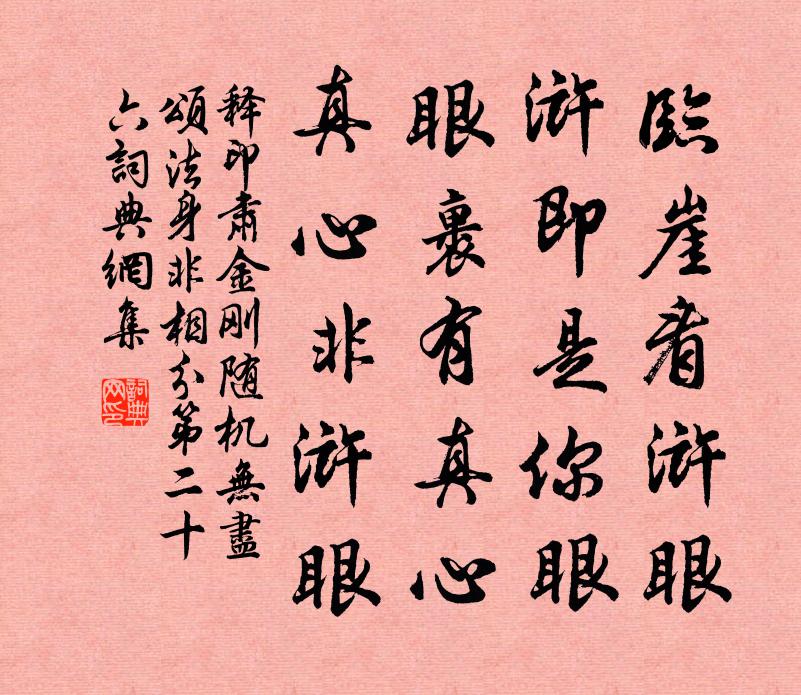 臨崖看滸眼
滸即是你眼
眼裏有真心
真心非滸眼
释印肅金刚随机無盡
頌法身非相分第二十
六詞典網集
詞典网印